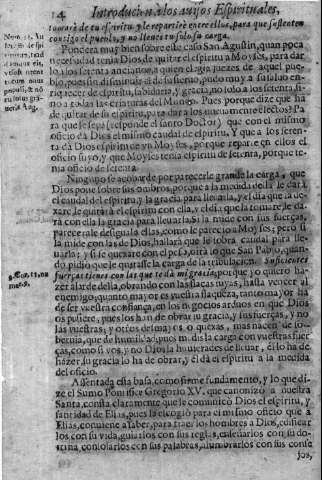 14 Introduccion a los avisos Espirituales,
tomaré de tu espiritu y le repartiré entre ellos, para que sustenten
contigo el pueblo, y no lleues tu solo su carga.
Ponderà muy bien sobre este caso San Agustin, quan poca
necesidad tenia Dios de quitar el espiritu a Moyses, para darlo
a los setenta ancianos, a quien el haze juezes de aquel pueblo,
pues sin disminuir de su fuente, pudo muy a su saluo
riquecer de espiritu, sabiduria, y gracia, no solo a los setenta, sino
a todas las criaturas del Mundo. Pues porque dize que ha
de quitar de su espiritu, para dar a los nueuamente electos? Para
que se sepa (responde el santo Dotor) que con el mismo
oficio dà Dios el mismo caudal de espiritu, Y que a los setenta
dà Dios espiritu de vn Moyses, porque reparte en ellos el
oficio suyo, y que Moyses tenia espiritu de setenta, porque tenia
oficio de setenta.
Ninguno se acobarde por parecerle grande la carga, que
Dios pone sobre sus ombros, porque a la medida della le darà
el caudal del espiritu, y la gracia para lleuarla, y el dia que la
dexare le quitarà el espiritu con ella, y el dia que la tomare le darà
con ella la gracia para lleuarla. Si la mide con sus fuerças,
parecerale desigual a ellas, como le parecio a Moyses; pero si
la mide con las de Dios, hallarà que le sobra caudal para lleuarla;
y si se quexare con el peso, oyrà lo que San Pablo, quando
pidio que le quitasse la carga de la tribulacion. Suficientes
fuerças tienes con las que te dà mi gracia; porque yo quiero hazer
alarde della, obrando con las flacas tuyas, hasta vencer al
enemigo; quanto mayor es vuestra flaqueza, tanto mayor ha
de ser vuestra confiança, en los negocios arduos en que Dios
os pusiere, pues los han de obrar su gracia, y sus fuerças, y no
las vuestras; y otros desmayos o quexas, mas nacen de soberuia,
que de humildad, pues medis la carga con vuestras fuerças,
como si vos, y no Dios la huuierades de lleuar, èl lo ha de
hazer, su gracia lo ha de obrar, y èl dà el espiritu a la medida
del oficio.
Assentada esta basa, como firme fundamento, y lo que dize
el Sumo Pontifice Gregorio XV. que canonizò a nuestra
Santa, consta claramente que le comunicò Dios el espiritu, y
santidad de Elias, pues la escogió para el mismo oficio que a
Elias, conuiene a saber, para traer los hombres a Dios, edificarlos
con su vida, guiarlos con sus reglas, enseñarlos con su dotrina,
consolarlos con sus palabras, alumbrarlos con sus conse
jos,
Aug.